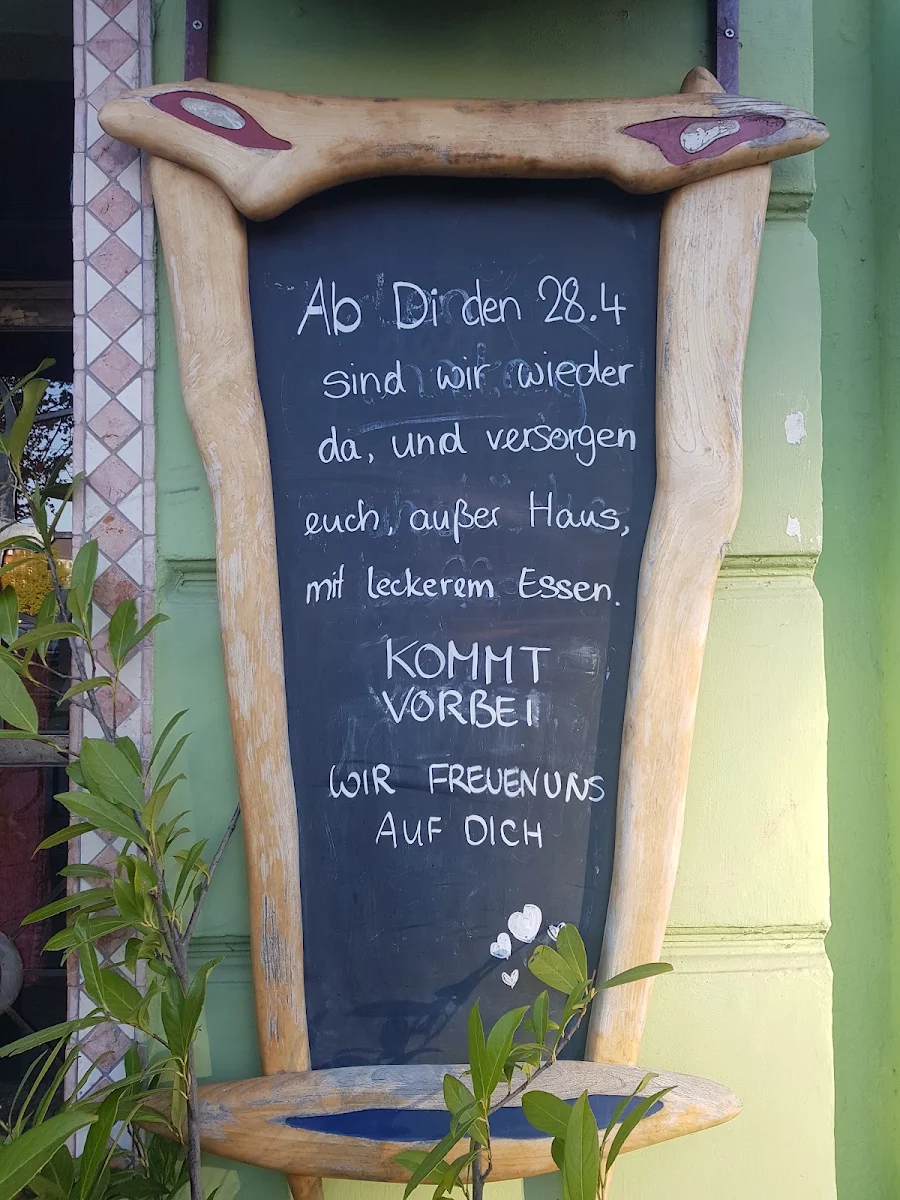 Ab Di den 28.4
sind wir wieder
da, und versorgen
euch, außer Haus,
mit leckerem Essen.
KOMMT
VORBEI
WIR FREUEN UNS
AUF DICH